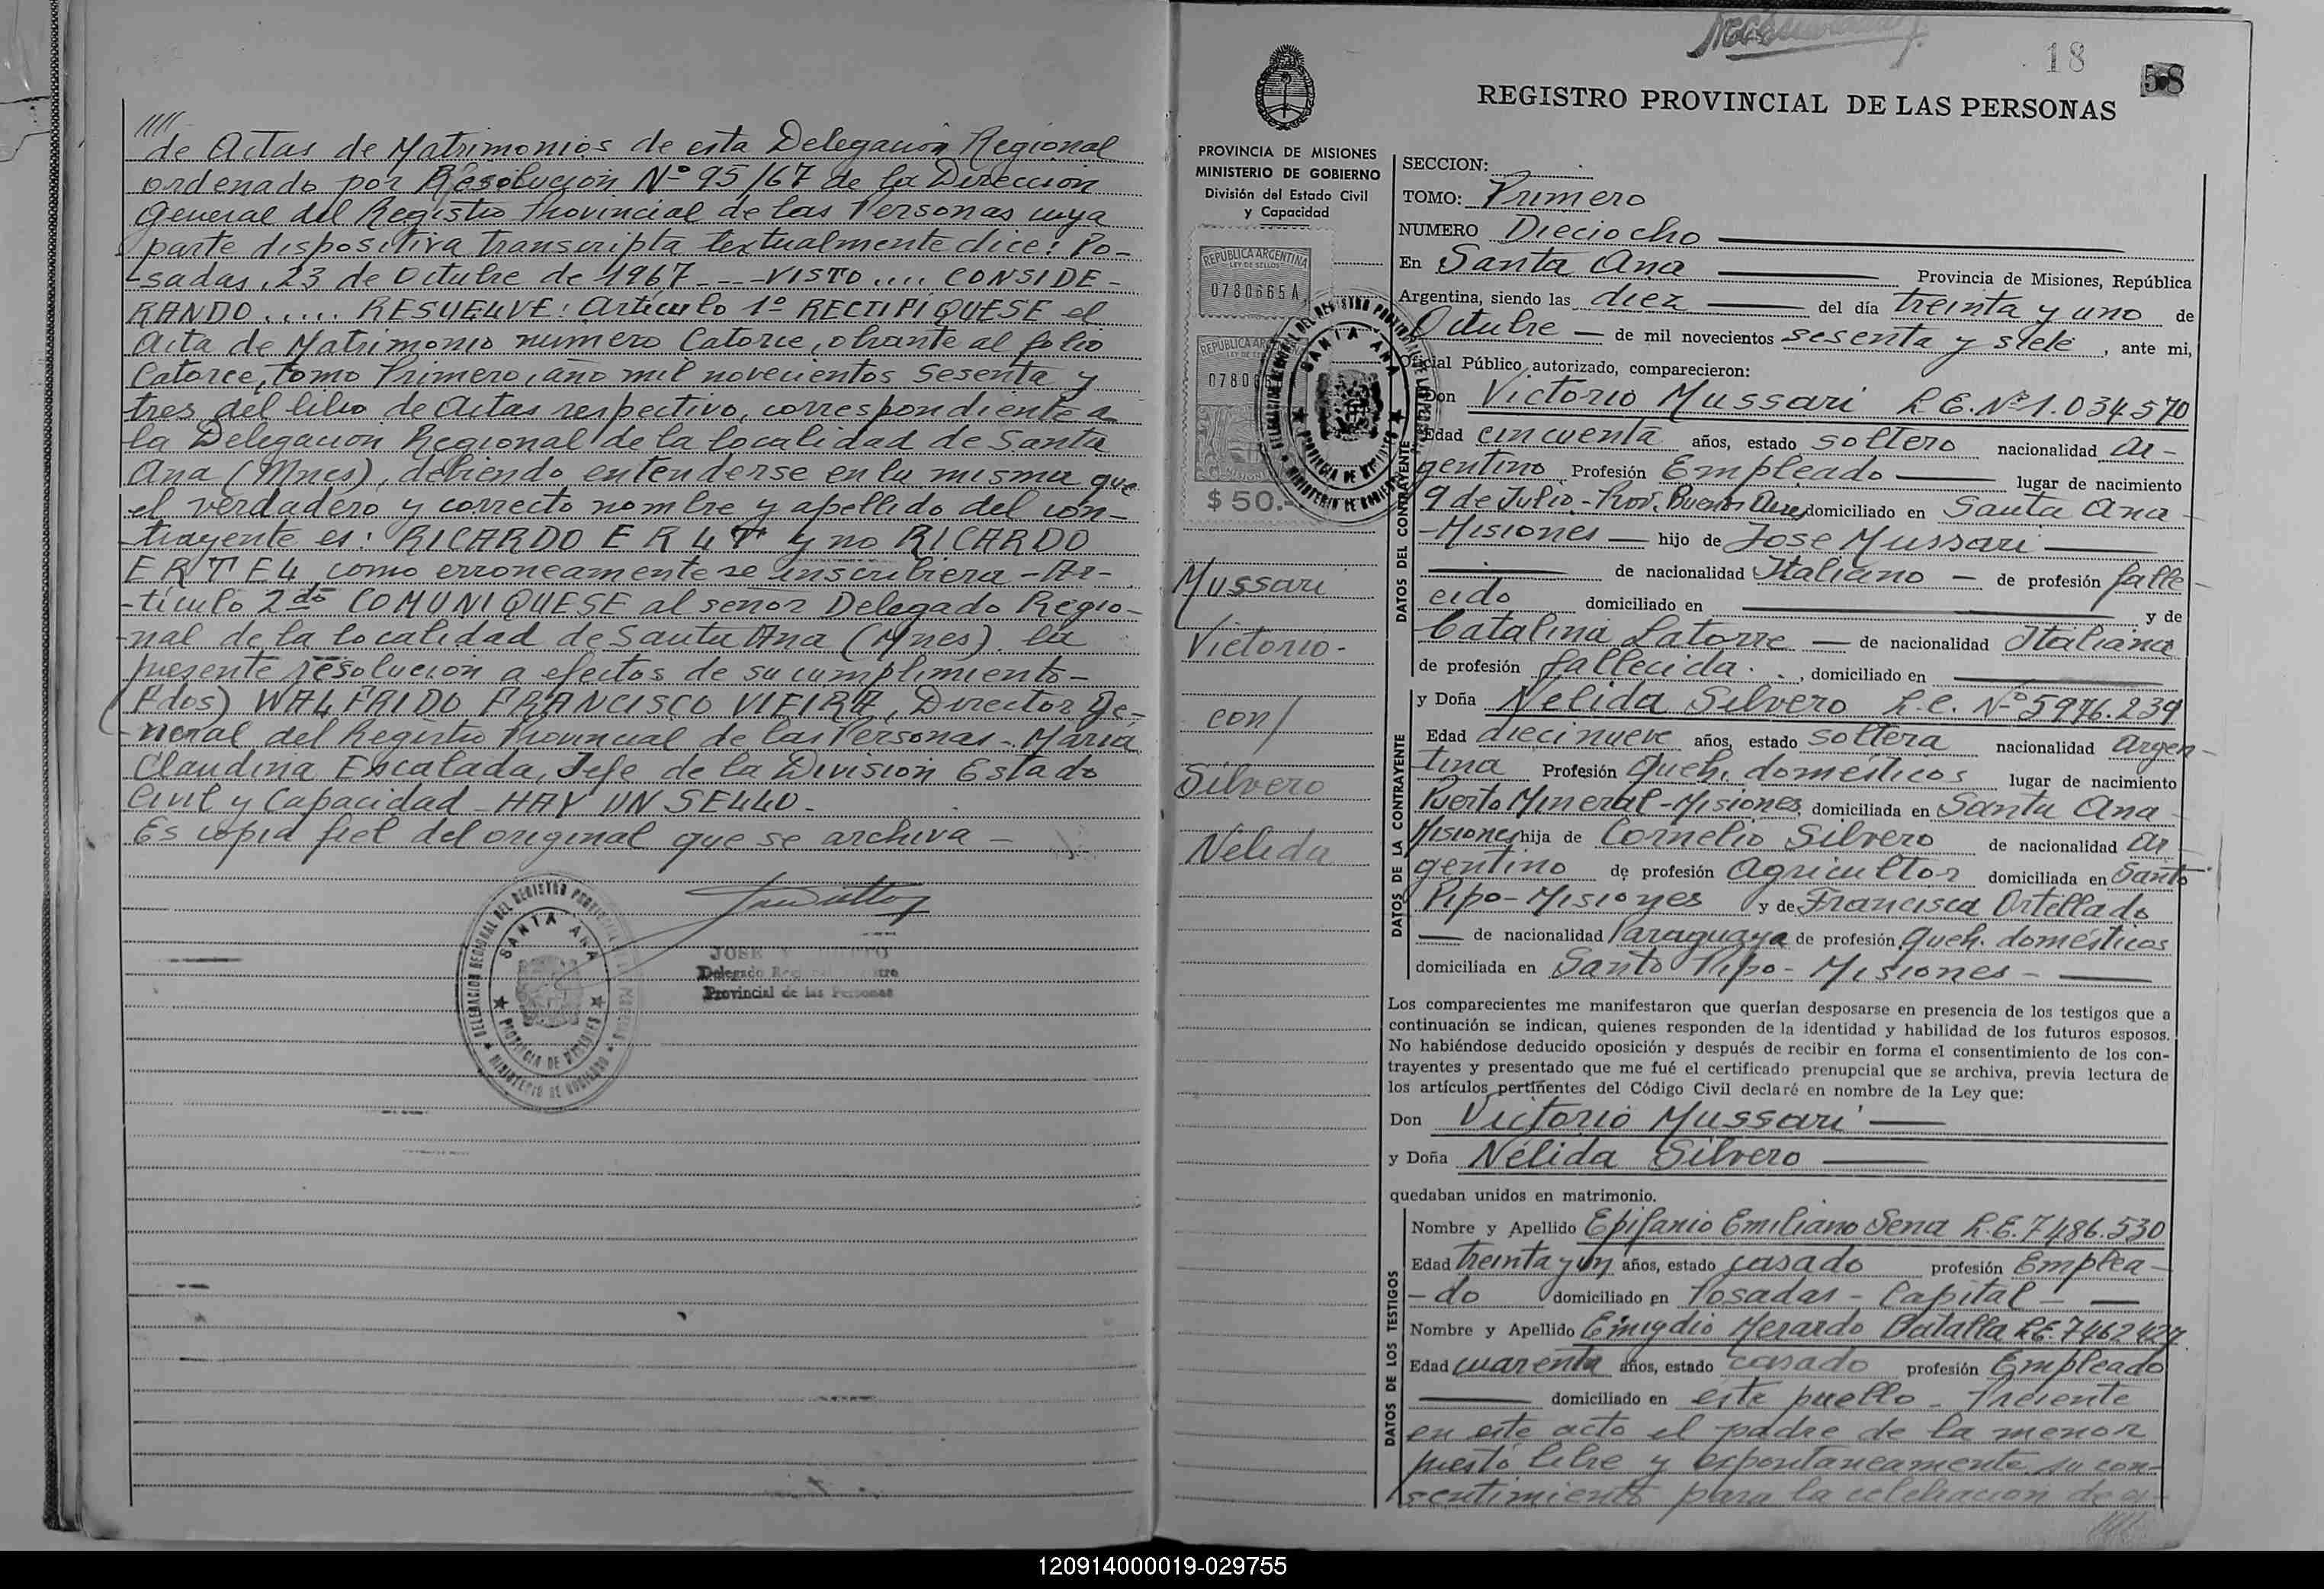 ////
de Actas de Matrimonios de esta Delegación Regional
ordenado por Résolución Nº 95/67 de la Dirección
General del Registro Provincial de las Personas cuya
parte dispositiva transcripta textualmente dice: Po-
sadas, 23 de Octubre de 1967 ---- VISTO .... CONSIDE-
RANDO ..... RESUELVE: Artículo 1º RECTIFIQUESE el
Acta de Matrimonio numero Catorce, obrante al folio
Catorce, tomo Primero, año mil novecientos Sesenta y
tres del libro de Actas respectivo, correspondiente a
la Delegación Regional de la localidad de Santa
Ana (Mnes), debiendo entenderse en la misma que
el verdadero y correcto nombre y apellido del con-
trayente es: RICARDO ERLT y no RICARDO
ERTEL, como erroneamente se inscribiera - Ar-
-tículo 2do COMUNIQUESE al señor Delegado Regio-
-nal de la localidad de Santa Ana (Mnes). la
presente résolución a efectos de su cumplimiento -
(Fdos) WALFRIDO FRANCISCO VIEIRA, Director Ge-
-neral del Registro Provincial de las Personas - Maria
Claudina Encalada, Jefe de la División Estado
Civil y Capacidad - HAY UN SELLO -
Es copia fiel del original que se archiva -
DELEGACION REGIONAL DEL REGISTRO
SANTA ANA
PROVINCIA DE MISIONES
MINISTERIO DE GOBIERNO
JOSE
Delegado
Provincial de las Personas
18
58
REGISTRO PROVINCIAL DE LAS PERSONAS
PROVINCIA DE MISIONES
MINISTERIO DE GOBIERNO
División del Estado Civil
y Capacidad
REPUBLICA ARGENTINA
LEY DE SELLOS
0780665 A
REPUBLICA
0780
$ 50.-
SANTA ANA
PROVINCIA DE
MINISTERIO DE GOBIERNO
Mussari
Victorio -
con/
Silvero
Nelida
SECCION:
TOMO: Primero
NUMERO Dieciocho
En Santa Ana Provincia de Misiones, República
Argentina, siendo las diez del día treinta y uno de
Octubre - de mil novecientos sesenta y siete, ante mi,
Oficial Público autorizado, comparecieron:
DATOS DEL CONTRAYENTE
Don Victorio Mussari L.E. Nº 1.034.570
Edad cincuenta años, estado soltero nacionalidad Ar-
gentino Profesión Empleado lugar de nacimiento
9 de Julio - Prov. Buenos Aires domiciliado en Santa Ana -
- Misiones - hijo de Jose Mussari
de nacionalidad Italiano - de profesión falle-
cido domiciliado en y de
Catalina Latorre - de nacionalidad Italiana
de profesión fallecida. , domiciliado en
DATOS DE LA CONTRAYENTE
y Doña Nelida Silvero L.C. Nº 5976.239
Edad diecinueve años, estado soltera nacionalidad Argen-
tina Profesión Queh. domésticos lugar de nacimiento
Puerto Mineral - Misiones, domiciliada en Santa Ana -
Misiones hija de Cornelio Silvero de nacionalidad Ar
gentino de profesión Agricultor domiciliada en Santo
Pipo - Misiones y de Francisca Ortellado
de nacionalidad Paraguaya de profesión Queh. domésticos
domiciliada en Santo Pipo - Misiones -
Los comparecientes me manifestaron que querían desposarse en presencia de los testigos que a
continuación se indican, quienes responden de la identidad y habilidad de los futuros esposos.
No habiéndose deducido oposición y después de recibir en forma el consentimiento de los con-
trayentes y presentado que me fué el certificado prenupcial que se archiva, previa lectura de
los artículos pertinentes del Código Civil declaré en nombre de la Ley que:
Don Victorio Mussari
y Doña Nélida Silvero
quedaban unidos en matrimonio.
DATOS DE LOS TESTIGOS
Nombre y Apellido Epifanio Emiliano Sena L.E. 7486.530
Edad treinta y un años, estado casado profesión Emplea-
- do domiciliado en Posadas - Capital -
Nombre y Apellido Emigdio Merardo Batalla L.E. 7462427
Edad cuarenta años, estado casado profesión Empleado
domiciliado en este pueblo - Presente
en este acto el padre de la menor
presto libre y espontaneamente su con-
sentimiento para la celebración de
120914000019-029755